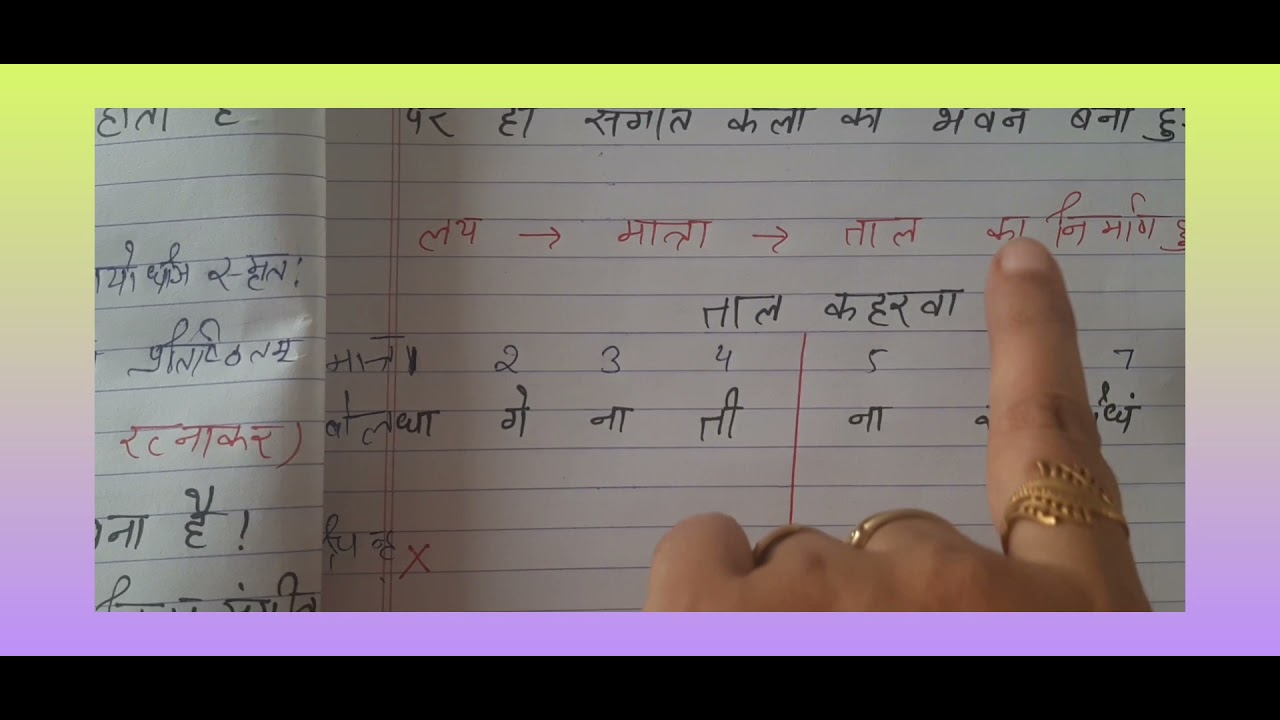 होता है
यो
प्रतिष्ठितम
रत्नाकर)
ना है!
संगीत
पर ही संगीत कला का भवन बना हु
लय → मात्रा → ताल का निर्माण हु
ताल कहरवा
मात्रा 1 2 3 4 5 7
बोल धा गे ना ती ना धिं
चिन्ह X